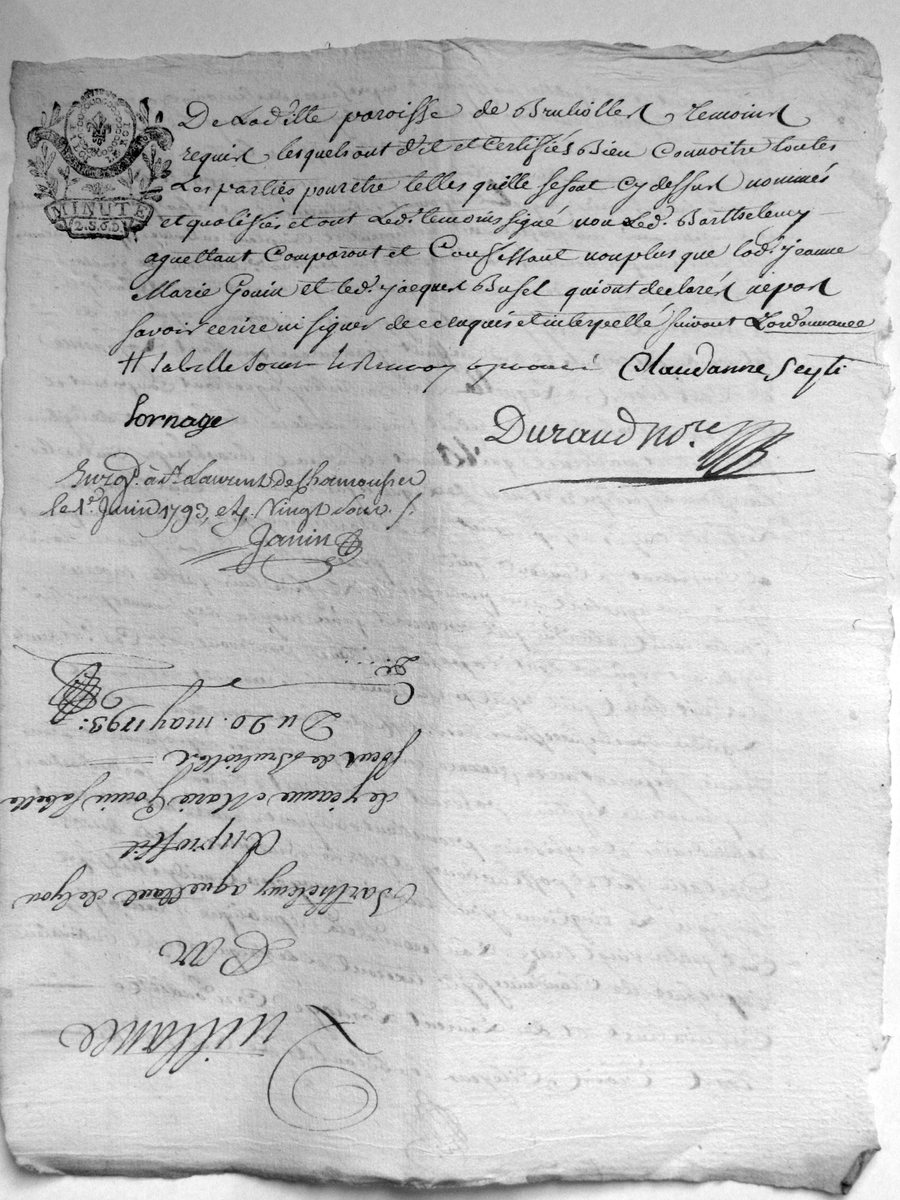 MINUTE
2.S.6.D
De Ladᵗᵉ paroisse de Brulliolles temoins
requis lesquels ont dit et Certifiés Bien Connoitre toutes
Les parties pour etre telles quelle se sont Cy dessus nommés
et qualiffiés et ont Led. temoins signé non Led. Barthelemy
aquettant Comparant et Confessant non plus que lad. jeanne
Marie Gouin et led. jacques Busel qui ont declarés ne pas
savoir ecrire ni signer de ce enquis et interpellé suivant Lordonnance
# labille Renvoy approuvé Claudanne Seyti
Lornage
Durand noʳᵉ
Enrgᵉ à Sᵗ Laurent de Chamousset
le 1ᵉʳ Juin 1793, Vingt Sous
Janin
Quittance
Par
Barthelemy aquettant de Lyon
Au proffit
de jeanne Marie Gouin labille
de Brulliolles
Du 20. may 1793: